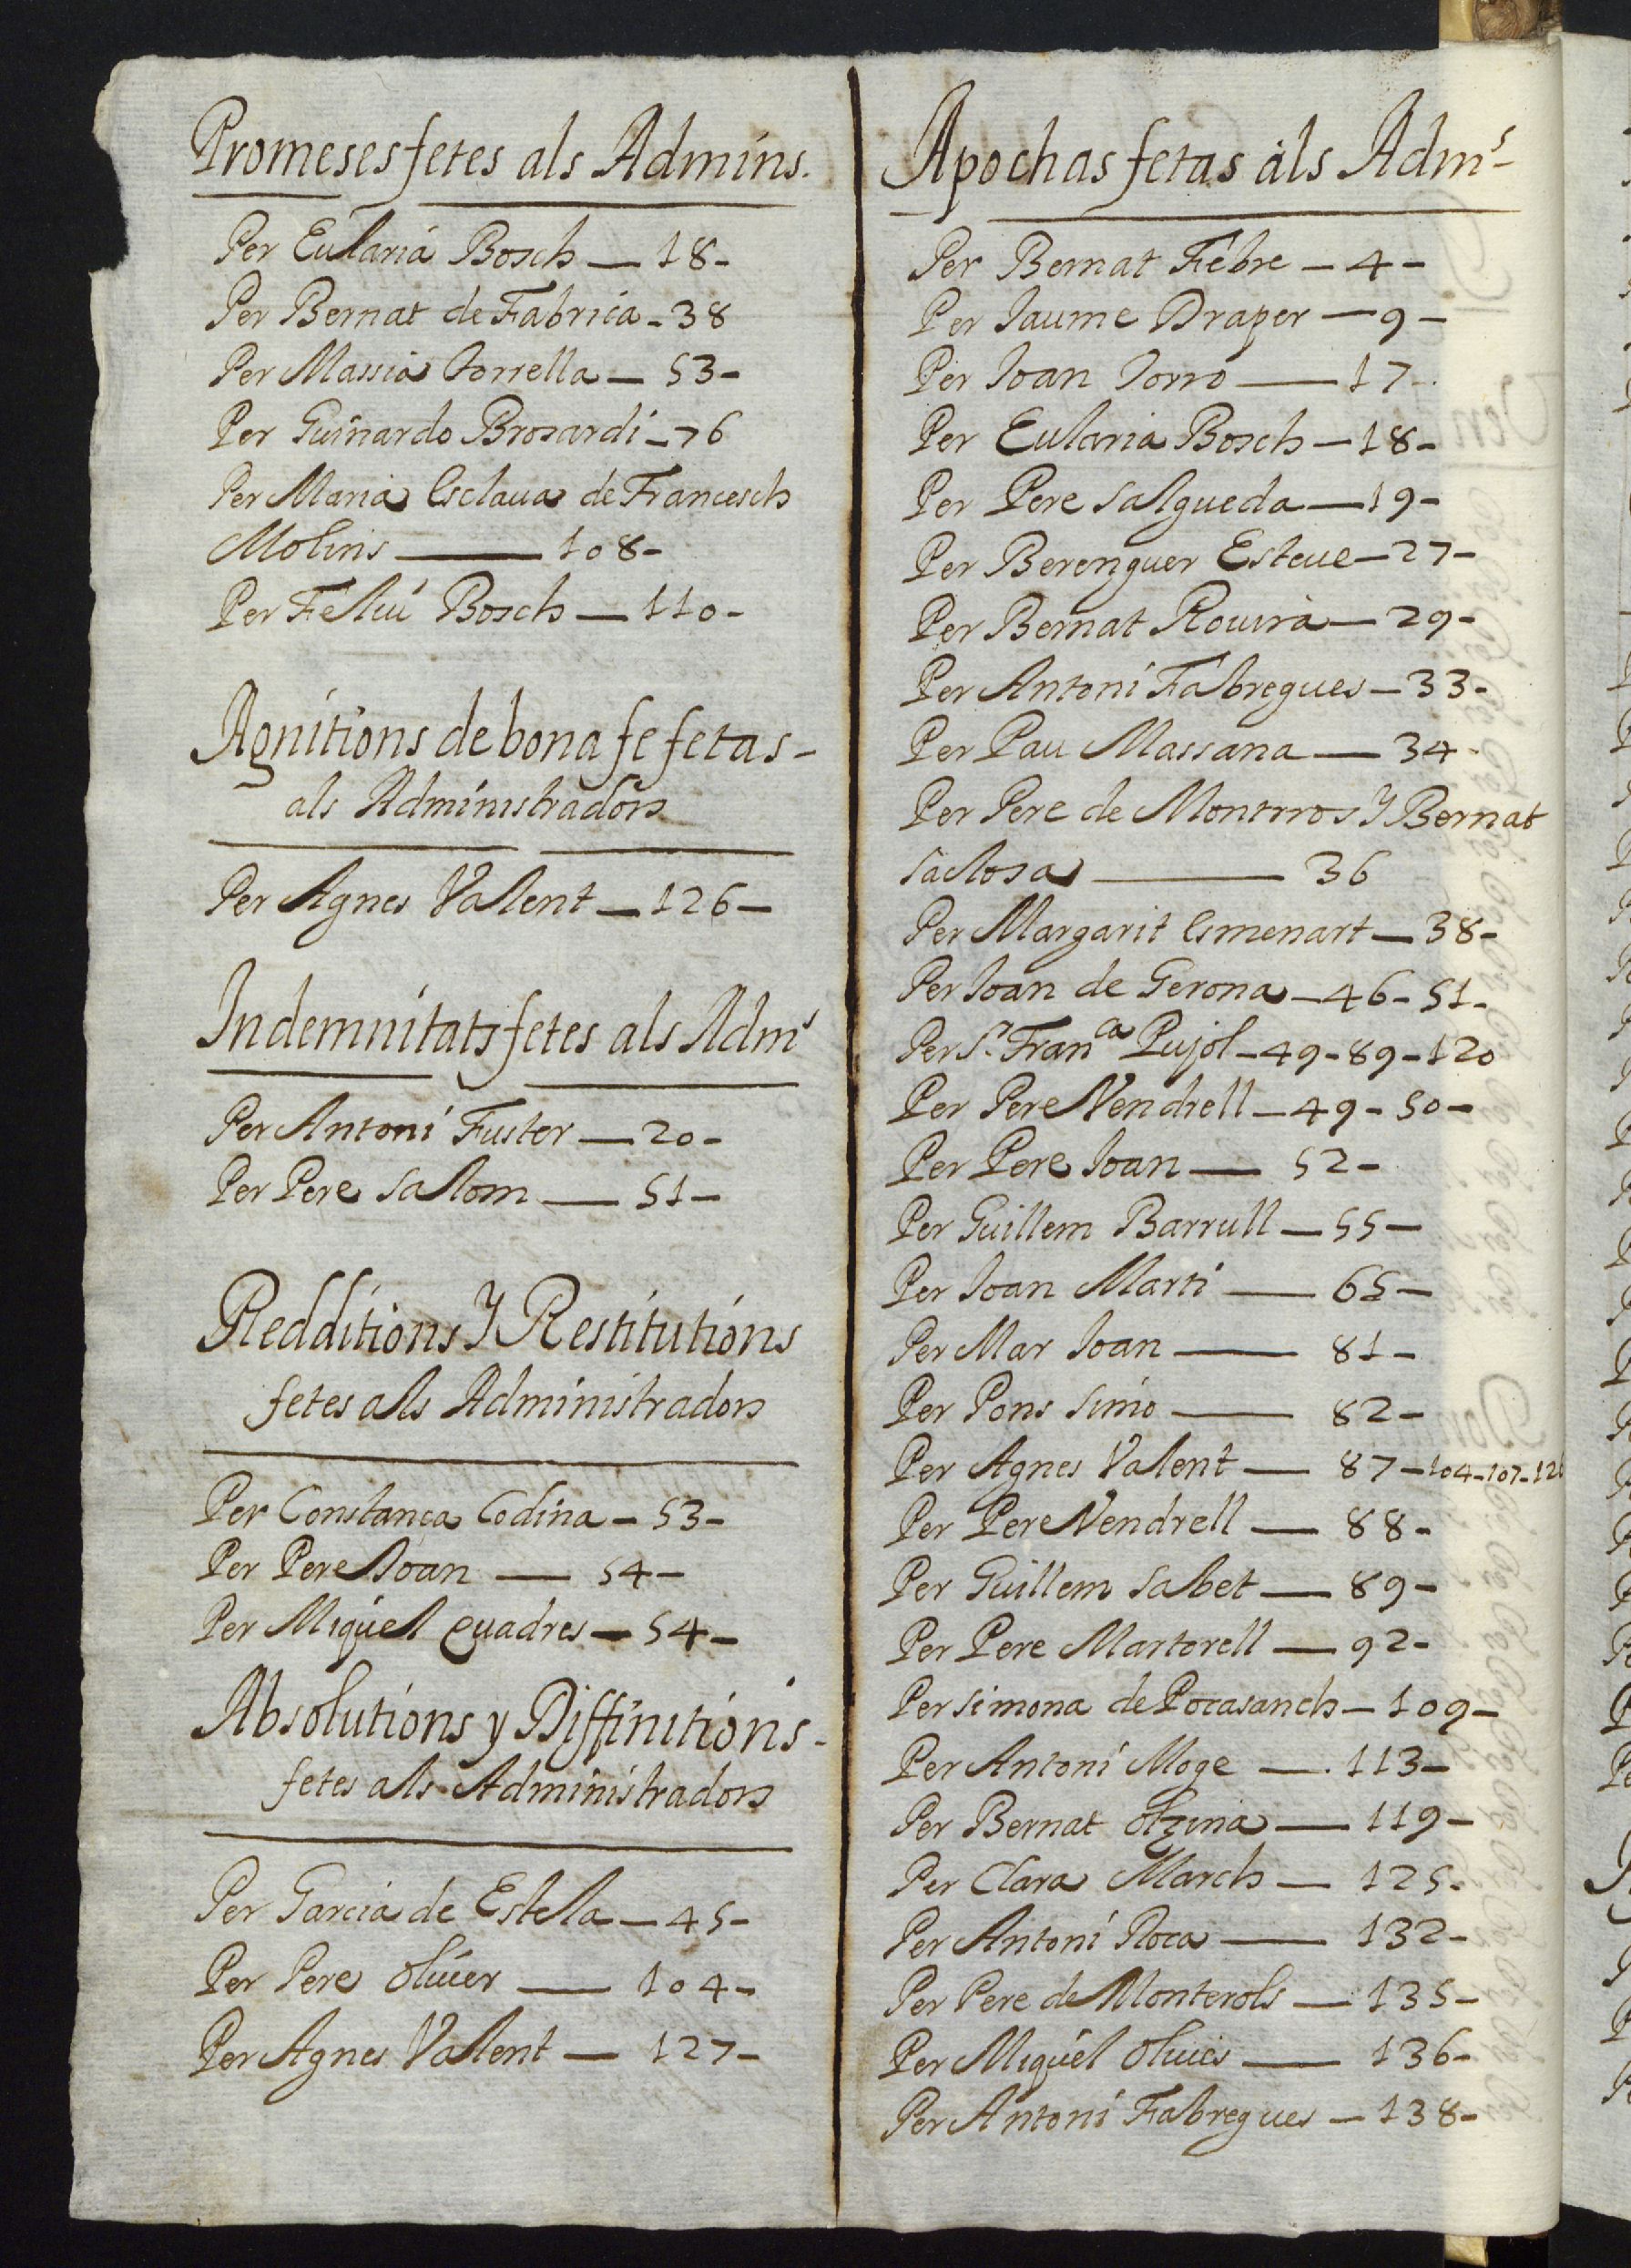 Promeses fetes als Admins.
Per Eularia Bosch — 18-
Per Bernat de Fabrica - 38
Per Massia torrella — 53-
Per Guinardo Brosardi - 76
Per Maria Esclaua de Francesch
Molins — 108-
Per Feliu Bosch — 110-
Agnitions de bona fe fetas-
als Administradors
Per Agnes Valent — 126-
Indemnitats fetes als Adm.s
Per Antoni Fuster — 20-
Per Pere Salom — 51-
Redditions Y Restitutions
fetes als Administradors
Per Constança Codina - 53-
Per Pere Joan — 54-
Per Miquel quadres — 54-
Absolutions y Diffinitions-
fetes als Administradors
Per Garcia de Estela — 45-
Per Pere oliuer — 104-
Per Agnes Valent — 127-
Apochas fetas als Adm.s-
Per Bernat Febre - 4-
Per Jaume Draper — 9-
Per Joan Jorro — 17-
Per Eularia Bosch — 18-
Per Pere Salgueda — 19-
Per Berenguer Esteue — 27-
Per Bernat Rouira — 29-
Per Antoni Fabregues — 33-
Per Pau Massana — 34-
Per Pere de Montrros Y Bernat
saclosa — 36
Per Margarit Esmenart — 38-
Per Joan de Gerona - 46 - 51-
Per S.r Fran.ca Pujol - 49 - 89 - 120
Per Pere Vendrell — 49 - 50-
Per Pere Joan — 52-
Per Guillem Barrull — 55-
Per Joan Marti — 65-
Per Mar Joan — 81-
Per Pons Simo — 82-
Per Agnes Valent — 87 - 104 - 107 - 126
Per Pere Vendrell — 88-
Per Guillem Sabet — 89-
Per Pere Martorell — 92-
Per Simona de Pocasanch — 109-
Per Antoni Moge — 113-
Per Bernat olzina — 119-
Per Clara March — 125-
Per Antoni Roca — 132-
Per Pere de Monterols — 135-
Per Miquel — 136-
Per Antoni Fabregues — 138-